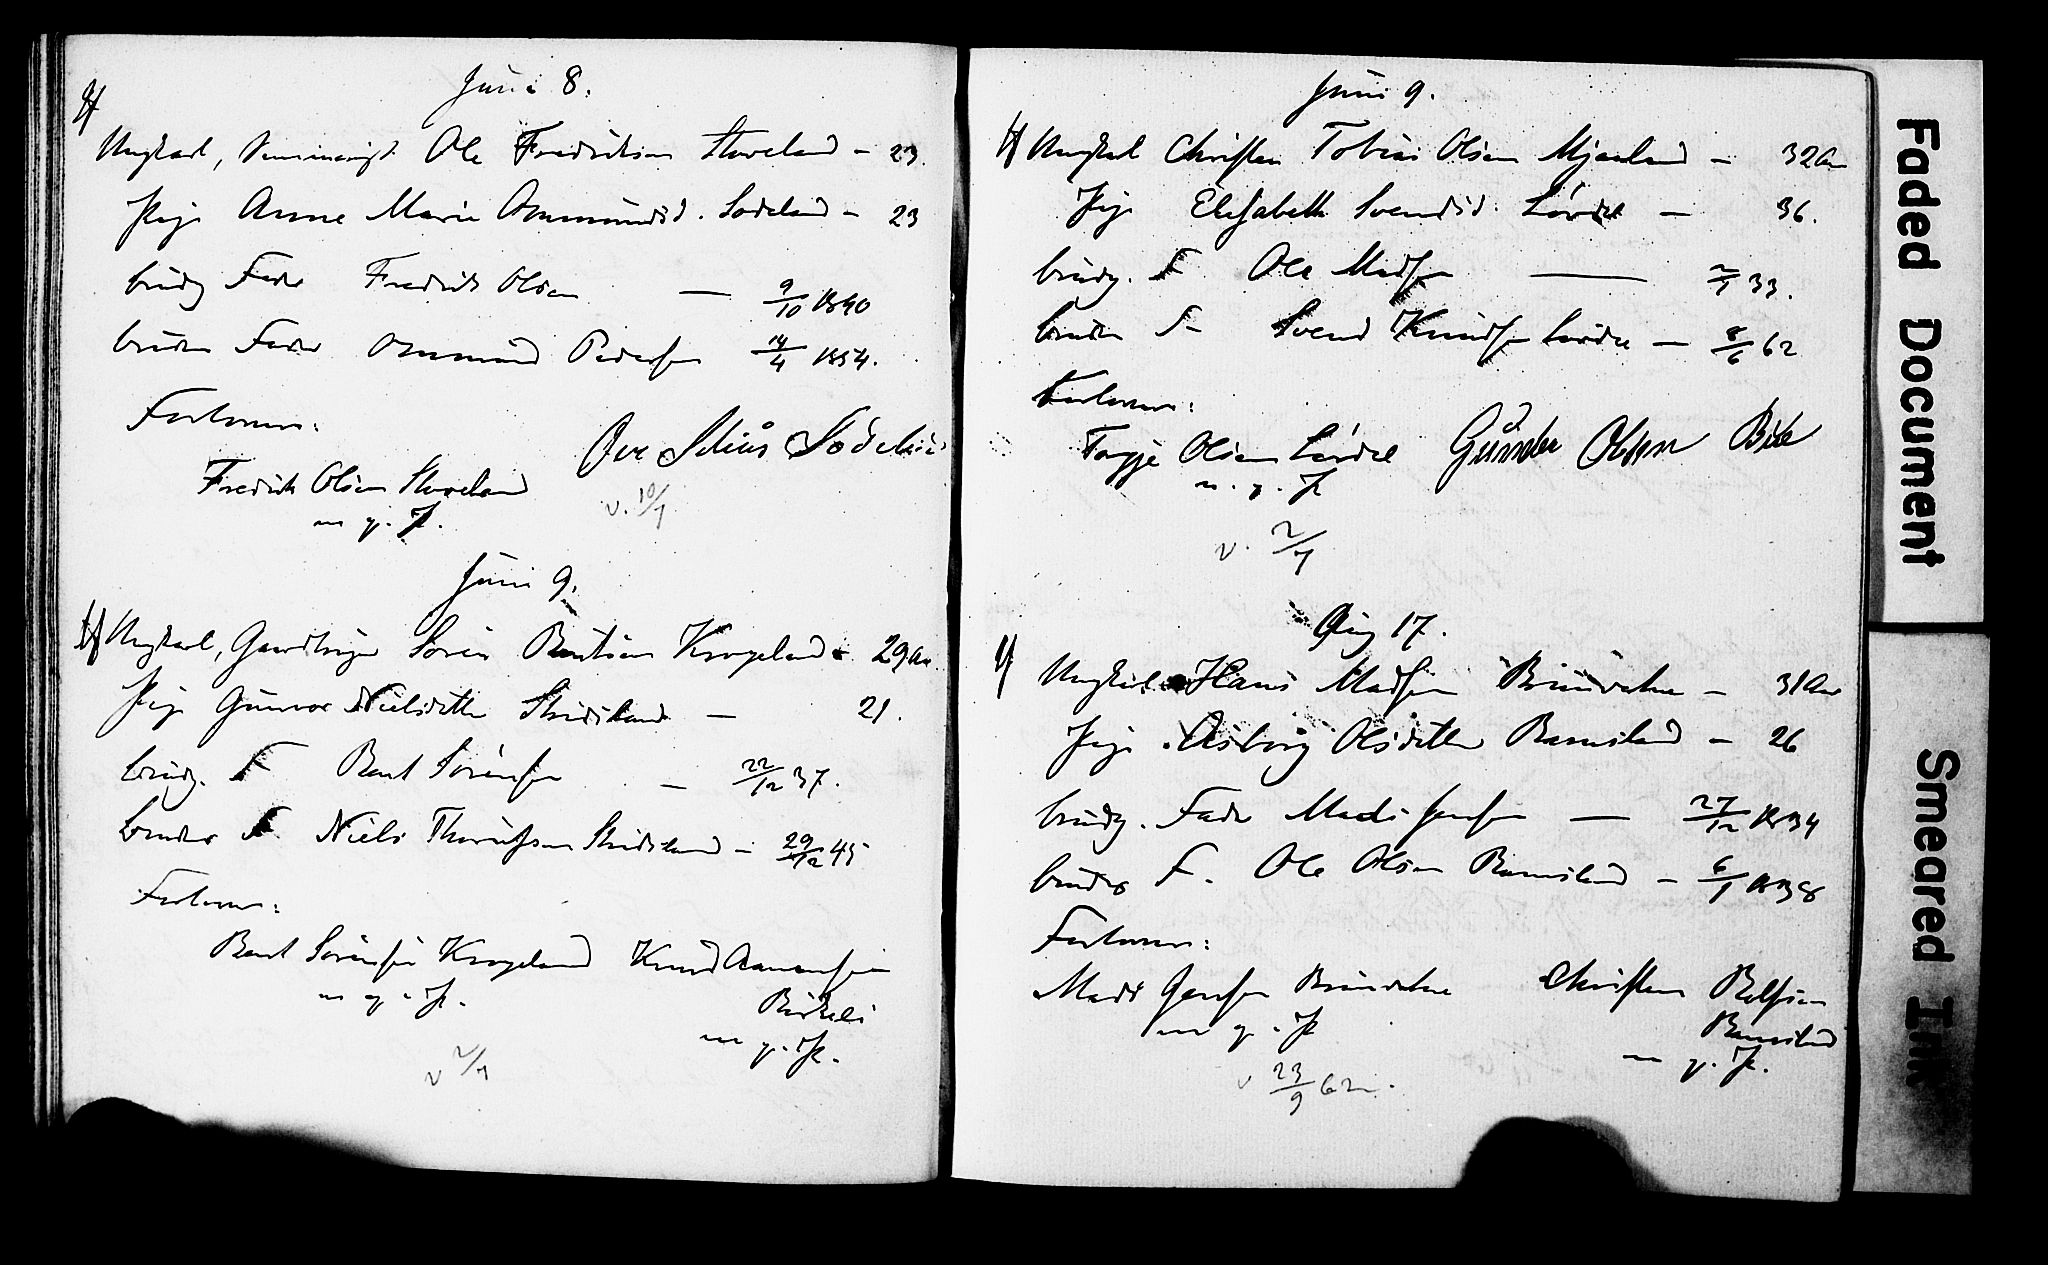 Juni 8.
Ungkarl, Seminarist Ole Fredriksen Stoveland - 23
Pige Anne Marie Ommundsd. Sodeland - 23
brudg Fader Fredrik Olsen — 9/10 1840
bruden Fader Ommund Pedersen 14/4 1854.
Forlovere:
Fredrik Olsen Stoveland
m. p. P.
Sodeland
v. 10/7
Juni 9.
Ungkarl, Gaardbruger Søren Bentsen Krogeland - 29 Aar
Pige Gunvor Nielsdatter Stridsland — 21.
brudg. F Bent Sørensen — 22/12 37.
brudens F Niels Stridsland - 29/12 45
Forlovere:
Bent Sørensen Krogeland Knud Aanensen
Birkeli
m. p. P. m. p. P.
v 2/7
Juni 9.
Ungkarl Christen Tobias Olsen Mjaaland — 32 Aar
Pige Elisabeth Svendsd. Lørdal — 36.
brudg. F Ole Madsen — 2/7 33.
bruden F Svend Knudsen Lørdal — 8/6 62
Forlovere:
Tarjje Olsen Lørdal Gunder Olsen
m. p. P
v. 2/7
Aug 17.
Ungkarl Hans Madsen Bruuvatne - 31 Aar
Pige Asborg Olsdatter Ramsland - 26
brudg. Fader Mads Jensen — 27/12 1834
brudens F. Ole Olsen Ramsland - 6/1 1838
Forlovere:
Mads Jensen Bruuvatne Christen
Ramsland
m. p. P m. p. P.
v 23/9 62
Faded Document
Smeared Ink